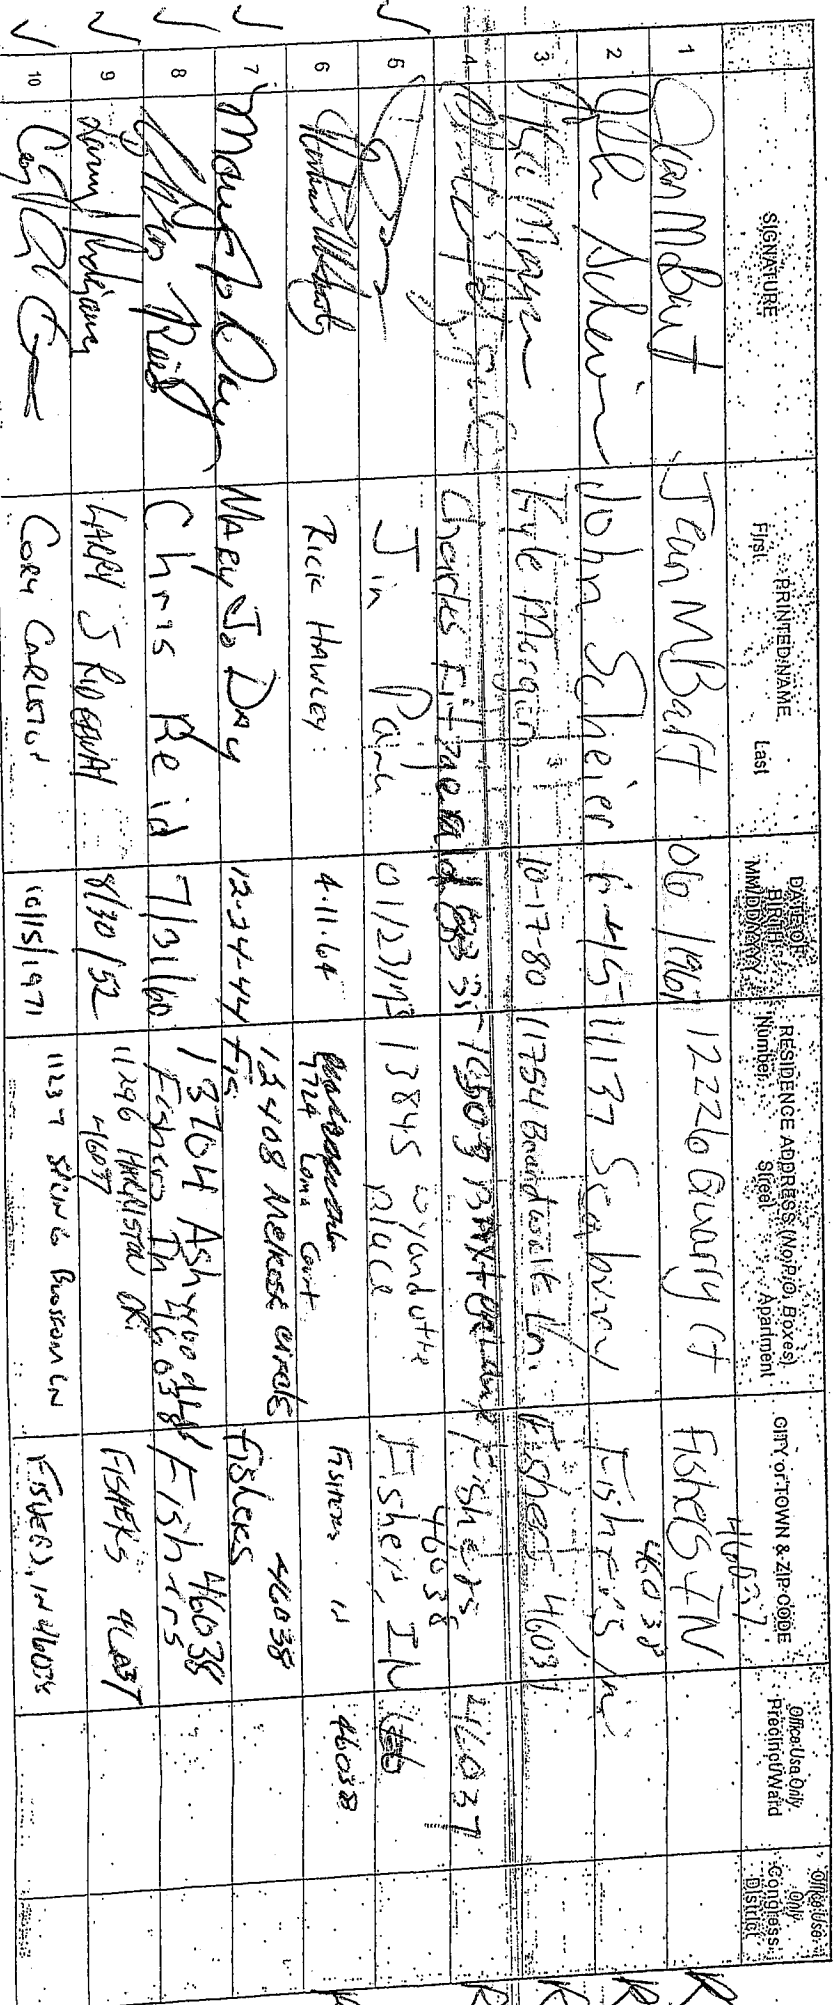 SIGNATURE
PRINTED NAME
First Last
DATE OF BIRTH
MM/DD/YYYY
RESIDENCE ADDRESS (No P.O. Boxes)
Number Street Apartment
CITY or TOWN & ZIP CODE
Office Use Only
Precinct/Ward
Office Use Only
Congress District
1 Jean M Bart Jean M Bart 1961 12226 Quarry Ct Fishers IN 46037 R
2 John Scheier John Scheier 11137 Fishers 46038 R
3 Kyle Morgan 10-17-80 11754 Boardwalk Ln. Fishers 46037 R
4 Charles Fitzgerald 10503 Fishers 46037 R
✓ 5 Jin Park 01/23/ 13845 Wyandotte Place Fishers, IN 46038
6 Rick Hawley 4.11.64 9724 Court Fishers IN 46038
✓ 7 Mary Jo Day Mary Jo Day 12-24-44 Fis 12408 Melrose circle Fishers 46038
✓ 8 Chris Reid Chris Reid 7/31/60 13704 Ashwood Fishers In 46038 Fishers 46038
✓ 9 Larry J Ridgeway 8/30/52 11296 DR. 46037 Fishers 46037
✓ 10 Cory Carleton 10/15/1971 11237 Spring Blossom LN Fishers, IN 46038